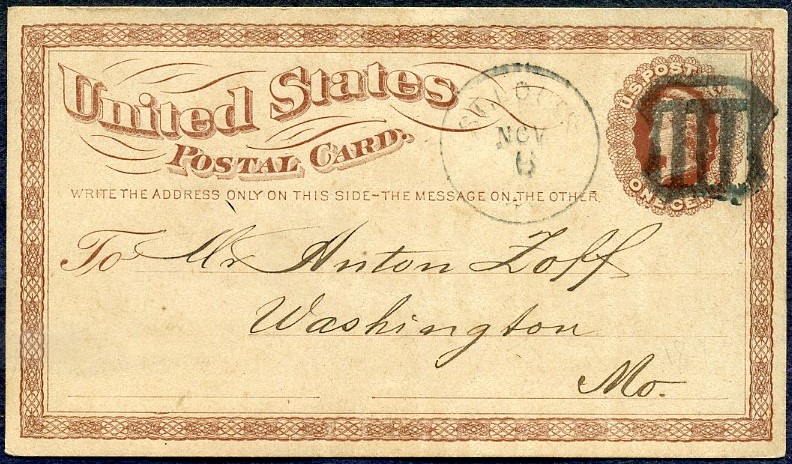 United States
Postal Card.
WRITE THE ADDRESS ONLY ON THIS SIDE-THE MESSAGE ON THE OTHER
ST. LOUIS
NOV
6
U.S. POST
ONE CE
To Mr Anton Zoff
Washington
Mo.